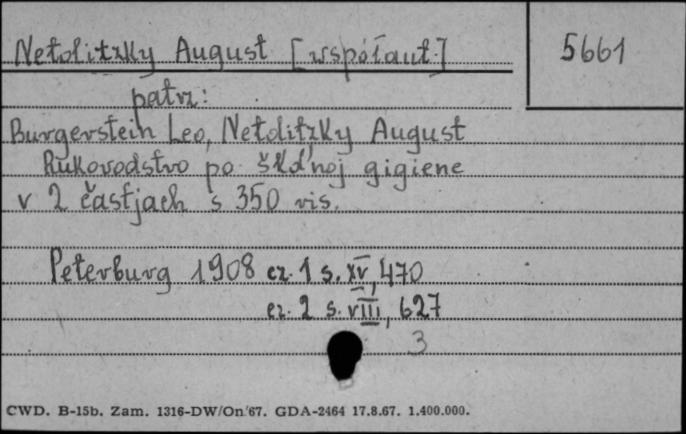 Netolitzky August [współaut.]
5661
patrz:
Burgerstein Leo, Netolitzky August
Rukovodstvo po škol'noj gigiene
v 2 častjach s 350 ris.
Peterburg 1908 cz. 1 s. XV, 470
cz. 2 s. VIII, 627
3
CWD. B-15b. Zam. 1316-DW/On/67. GDA-2464 17.8.67. 1.400.000.